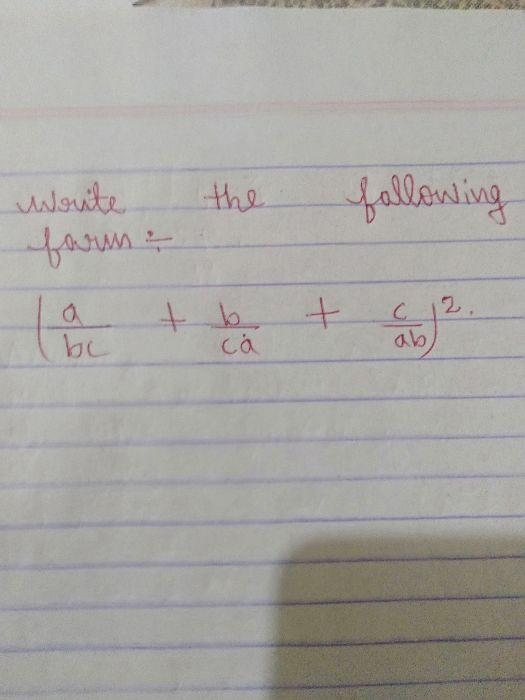 Write the following
form :-
(a/bc + b/ca + c/ab)².